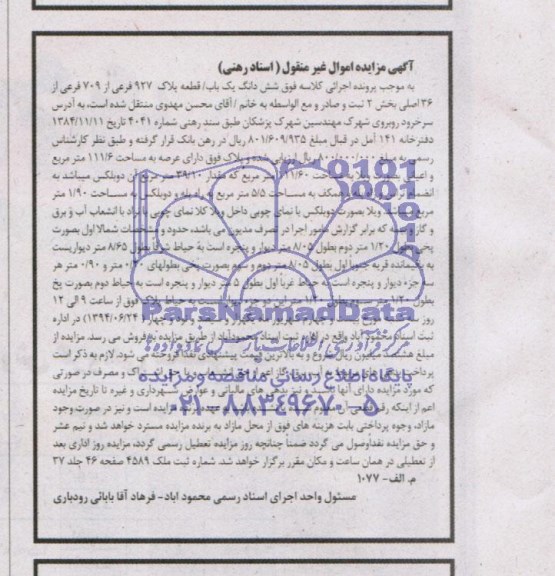 آگهی مزایده اموال غیر منقول ( اسناد رهنی)
به موجب پرونده اجرائی کلاسه فوق شش دانگ یک باب/ قطعه پلاک ۹۲۷ فرعی از ۷۰۹ فرعی از
۳۶ اصلی بخش ۲ ثبت و صادر و مع الواسطه به خانم / آقای محسن مهدوی منتقل شده است، به آدرس
سرخرود روبروی شهرک مهندسین شهرک پزشکان طبق سند رهنی شماره ۴۰۴۱ تاریخ ۱۳۸۴/۱۱/۱۱
دفترخانه ۱۴۱ آمل در قبال مبلغ ۸۰۱/۶۰۹/۹۳۵ ریال در رهن بانک قرار گرفته و طبق نظر کارشناس
رسمی به مبلغ ۸۰۰/۰۰۰/۰۰۰ ریال ارزیابی شده و پلاک فوق دارای عرصه به مساحت ۱۱۱/۶ متر مربع
و اعیان ویلا متر مربع که مقدار ۳۹/۱۰ متر مربع آن دوبلکس میباشد به
انضمام همکف به مساحت ۵/۵ متر مربع راه پله و دوبلکس به مساحت ۱/۹۰ متر
مربع ویلا بصورت دوبلکس با نمای چوبی داخل ویلا کلا نمای چوبی با انشعاب آب و برق
و گاز که برابر گزارش مامور اجرا در تصرف مدیون می باشد، حدود و مشخصات شمالا اول بصورت
پخی بطول ۱/۲۰ متر دوم بطول ۸/۰۵ متر دیوار و پنجره است به حیاط شرقا بطول ۸/۶۵ متر دیواریست
به باقیمانده قریه جنوبا اول بطول ۸/۰۵ متر دوم و سوم بصورت پخی بطولهای متر و ۰/۹۰ متر هر
جزء دیوار و پنجره است به حیاط غربا اول بطول ۵ متر دیوار و پنجره است به حیاط دوم بصورت پخ
بطول ۱/۲۰ متر بطول ۱/۲۰ متر این دو جزء به حیاط پلاک فوق از ساعت ۹ الی ۱۲
روز (۱۳۹۴/۰۶/۲۴) در اداره
ثبت اسناد محمود آباد واقع در ثبت اسناد محمودآباد از طریق مزایده به فروش می رسد. مزایده از
مبلغ هشتصد میلیون ریال شروع و به بالاترین قیمت پیشنهادی نقدا فروخته می شود. لازم به ذکر است
پرداخت آب، برق، گاز اعم از حق انشعاب و یا حق اشتراک و مصرف در صورتی
که مورد مزایده دارای آنها باشد و نیز بدهی های مالیاتی و عوارض شهرداری و غیره تا تاریخ مزایده
اعم از اینکه رقم قطعی آن معلوم مزایده است و نیز در صورت وجود
مازاد، وجوه پرداختی بابت هزینه های فوق از محل مازاد به برنده مزایده مسترد خواهد شد و نیم عشر
و حق مزایده نقدا وصول می گردد ضمنا چنانچه روز مزایده تعطیل رسمی گردد، مزایده روز اداری بعد
از تعطیلی در همان ساعت و مکان مقرر برگزار خواهد شد. شماره ثبت ملک ۴۵۸۹ صفحه ۴۶ جلد ۳۷
م. الف- ۱۰۷۷
مسئول واحد اجرای اسناد رسمی محمود آباد- فرهاد آقا بابائی رودباری
ParsNamadData
مرکز فرآوری اطلاعات پارس نماد داده ها
پایگاه اطلاع رسانی مناقصه و مزایده
۰۲۱-۸۸۳۴۹۶۷۰-۵